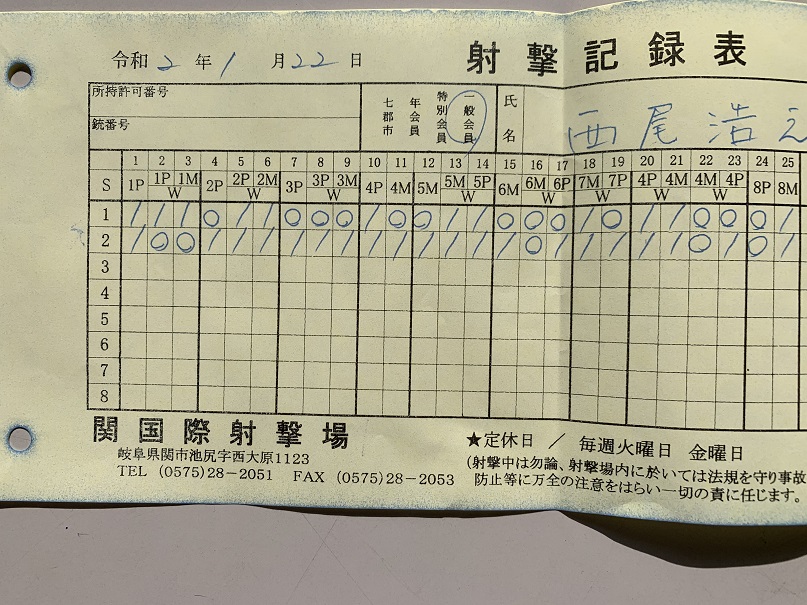 令和2年1月22日 射撃記録表
所持許可番号
銃番号
七郡市 年会員 特別会員 一般会員
氏名 西尾浩
1 2 3 4 5 6 7 8 9 10 11 12 13 14 15 16 17 18 19 20 21 22 23 24 25
S 1P 1P 1M W 2P 2P 2M W 3P 3P 3M W 4P 4M 5M 5M 5P W 6M 6M 6P W 7M 7P W 4P 4M W 4M 4P W 8P 8M
1 / / / 0 / / 0 0 0 / 0 0 / / 0 0 0 / 0 / / 0 0 0 /
2 / 0 0 / / / / / / / / / / / / 0 / / / / / 0 / 0 /
3
4
5
6
7
8
関国際射撃場
岐阜県関市池尻字西大原1123
TEL (0575)28-2051 FAX (0575)28-2053
★定休日 / 毎週火曜日 金曜日
(射撃中は勿論、射撃場内に於いては法規を守り事故
防止等に万全の注意をはらい一切の責に任じます。